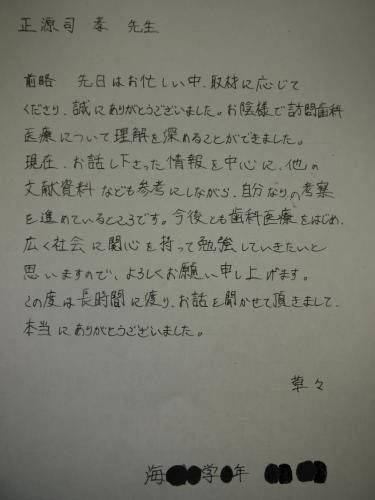 正源司 孝 先生
前略 先日はお忙しい中、取材に応じて
くださり、誠にありがとうございました。お陰様で訪問歯科
医療について理解を深めることができました。
現在、お話し下さった情報を中心に、他の
文献資料なども参考にしながら、自分なりの考察
を進めているところです。今後とも歯科医療をはじめ、
広く社会に関心を持って勉強していきたいと
思いますので、よろしくお願い申し上げます。
この度は長時間に渡り、お話を聞かせて頂きまして、
本当にありがとうございました。
草々
海 学 年